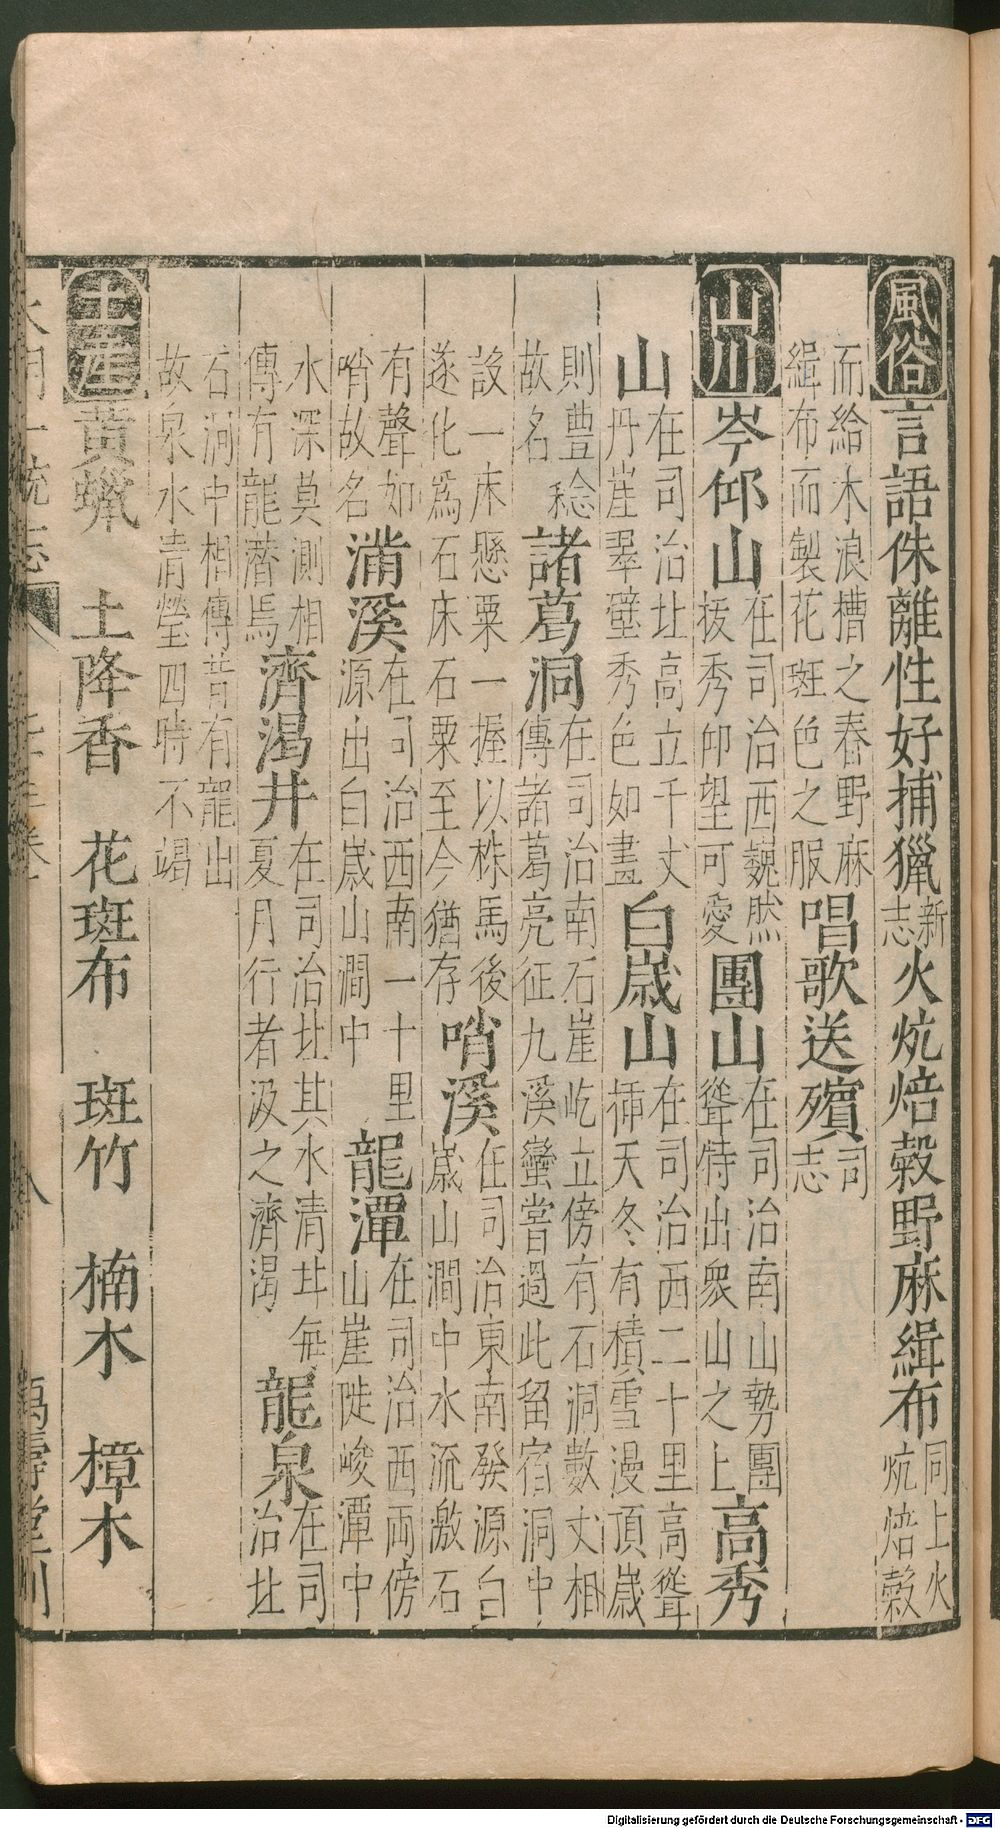 風俗 言語侏離性好捕獵新志火炕焙穀野麻緝布同上火炕焙穀
而給木浪槽之舂野麻緝布而製花斑色之服唱歌送殯司志
山川 岑仰山在司治西巍然拔秀仰望可愛團山在司治南山勢團聳特出衆山之上高秀
山在司治北高立千丈丹崖翠壁秀色如畫白崴山在司治西二十里高聳揷天冬有積雪漫頂歲
則豊稔故名諸葛洞在司治南石崖屹立傍有石洞數丈相傳諸葛亮征九溪蠻嘗過此留宿洞中
設一床懸粟一握以秣馬後遂化爲石床石粟至今猶存哨溪在司治東南發源白崴山澗中水流激石
有聲如哨故名滿溪在司治西南一十里源出白崴山澗中龍潭在司治西兩傍山崖陡峻潭中
水深莫測相傳有龍潛焉濟渴井在司治北其水清 每夏月行者汲之濟渴龍泉在司治北
石澗中相傳昔有龍出故泉水清瑩四時不竭
土産 黃蠟 土降香 花斑布 斑竹 楠木 樟木
大明一統志 八 萬壽堂刊
Digitalisierung gefördert durch die Deutsche Forschungsgemeinschaft - DFG